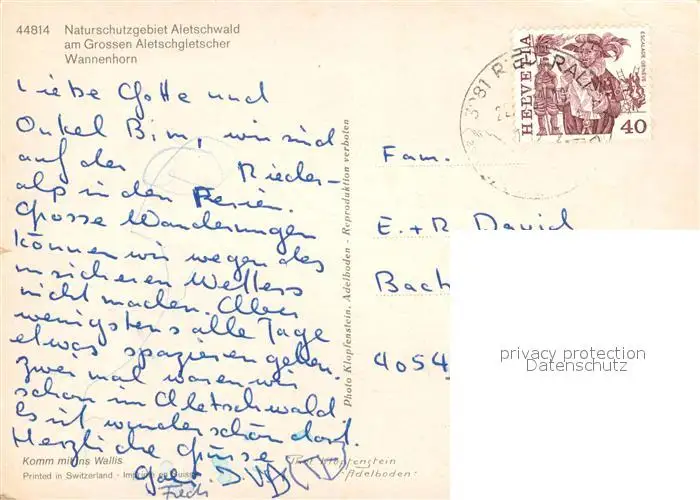 44814 Naturschutzgebiet Aletschwald
am Grossen Aletschgletscher
Wannenhorn
Liebe Gotte und
Onkel Bim, wir sind
auf der Rieder-
alp in den Ferien.
Grosse Wanderungen
können wir wegen des
unsicheren Wetters
nicht machen. Aber
wenigstens alle Tage
etwas spazieren gehen.
zwei mal waren wir
schon im Aletschwald
Es ist wunderschön dort.
Herzliche Grüsse
Komm mit ins Wallis
Printed in Switzerland - Imprimé en Suisse
Photo Klopfenstein, Adelboden - Reproduktion verboten
Phot. Klopfenstein
Adelboden
HELVETIA
ESCALADE GENÈVE
40
Fam.
E. + R. David
Bach
4054
privacy protection
Datenschutz